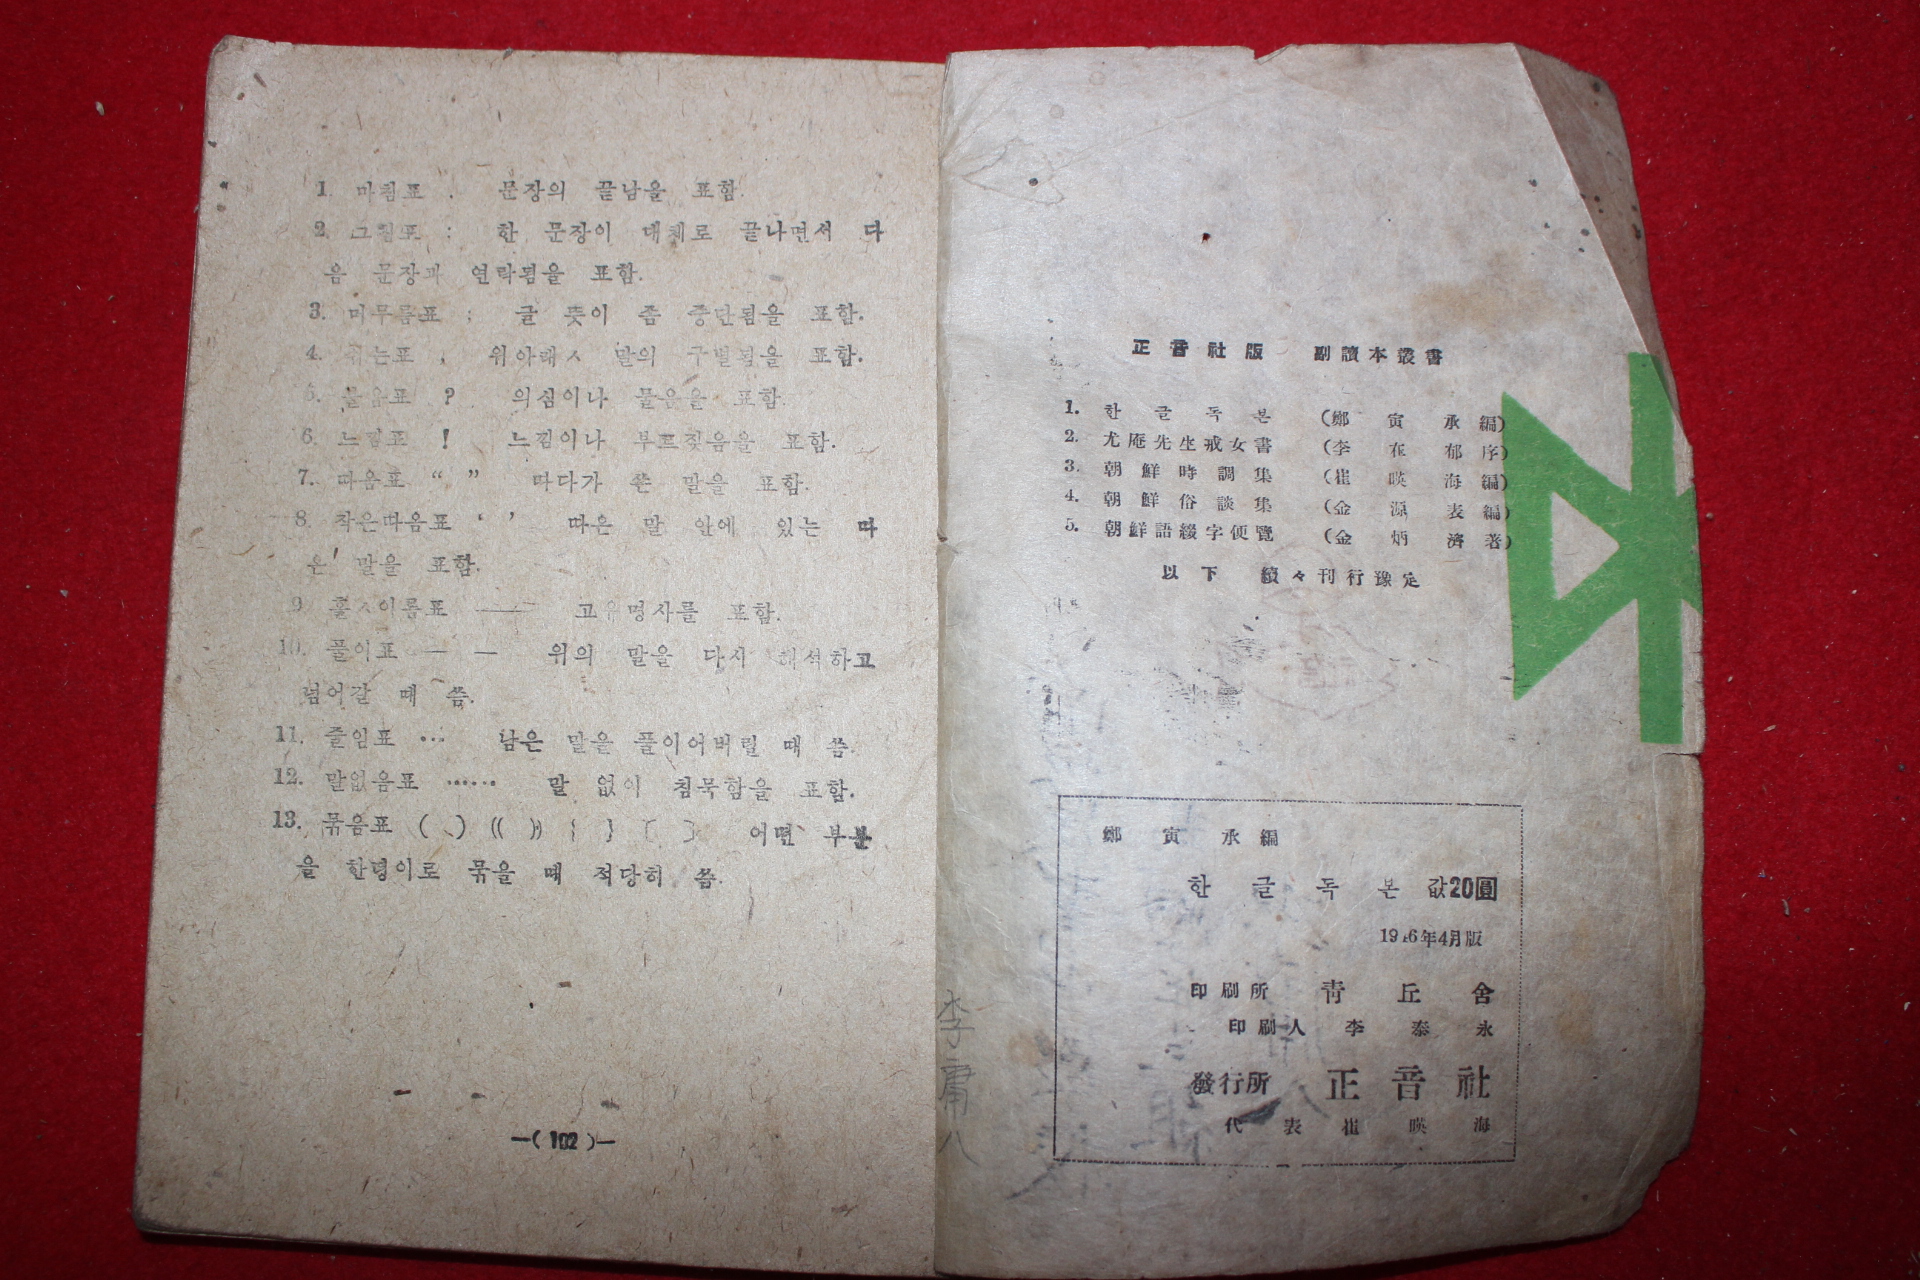 1. 마침표 . 문장의 끝남을 표함.
2. 그침표 : 한 문장이 대체로 끝나면서 다
음 문장과 연락됨을 표함.
3. 머무름표 ; 글 뜻이 좀 중단됨을 표함.
4. 쉬는표 , 위아래ㅅ 말의 구별됨을 표함.
5. 물음표 ? 의심이나 물음을 표함.
6. 느낌표 ! 느낌이나 부르짖음을 표함.
7. 따옴표 “ ” 따다가 쓴 말을 표함.
8. 작은따옴표 ‘ ’ 따온 말 안에 있는 따
온 말을 표함.
9. 홀ㅅ이름표 ── 고유명사를 표함.
10. 풀이표 — — 위의 말을 다시 해석하고
넘어갈 때 씀.
11. 줄임표 … 남은 말을 풀이어버릴 때 씀.
12. 말없음표 …… 말 없이 침묵함을 표함.
13. 묶음표 ( ) (( )) { } [ ] 어떤 부분
을 한덩이로 묶을 때 적당히 씀.
—( 102 )—
李庸八
正音社版 副讀本叢書
1. 한글독본 (鄭寅承編)
2. 尤庵先生戒女書 (李在郁序)
3. 朝鮮時調集 (崔暎海編)
4. 朝鮮俗談集 (金源表編)
5. 朝鮮語綴字便覽 (金炳濟著)
以下 續々刊行豫定
鄭寅承編
한글독본 값20圓
1946年4月版
印刷所 靑丘舍
印刷人 李泰永
發行所 正音社
代表 崔暎海